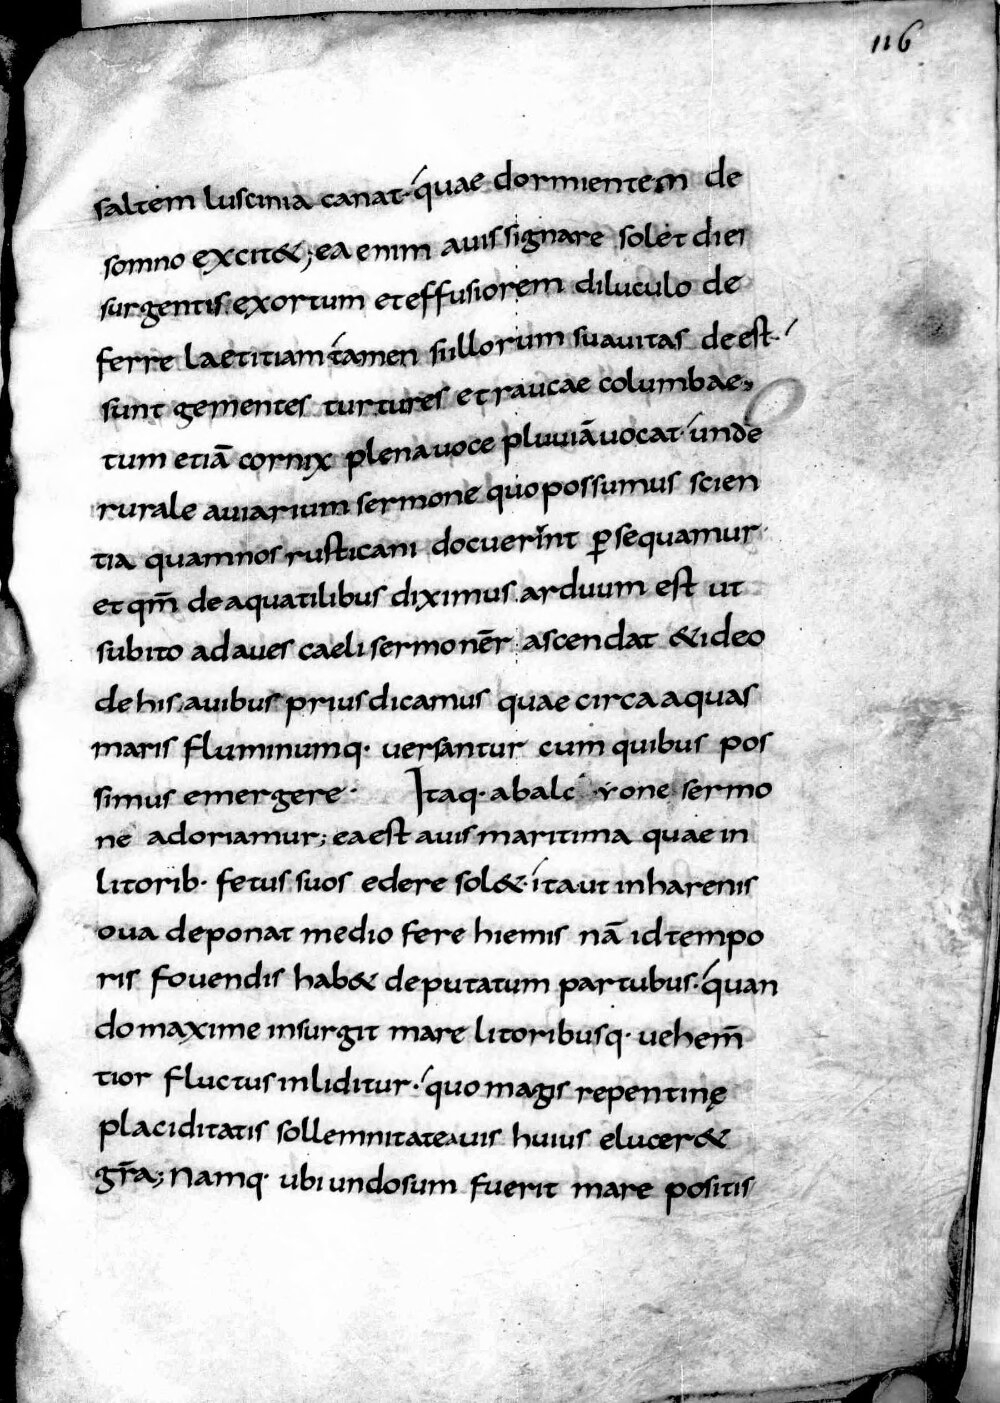 116
saltem luscinia canat· quae dormientem de
somno excit&; ea enim auis signare solet diei
surgentis exortum et effusiorem diluculo de
ferre laetitiam tamen si illorum suauitas deest·
sunt gementes turtures et raucae columbae;
tum etiā cornix plena uoce pluuiā uocat· unde
rurale auiarium sermone quo possumus scien
tia quam nos rusticani docuerint ꝑsequamur·
et qm̄ de aquatilibus diximus arduum est ut
subito ad aues caeli sermo nēr ascendat &ideo
de his auibus prius dicamus quae circa aquas
maris fluminumq· uersantur cum quibus pos
simus emergere· Itaq· ab alc yone sermo
ne adoriamur; ea est auis maritima quae in
litorib· fetus suos edere sol&· ita ut in harenis
oua deponat medio fere hiemis nā id tempo
ris fouendis hab& deputatum partubus· quan
do maxime insurgit mare litoribusq· uehem̄
tior fluctus inliditur· quo magis repentinę
placiditatis sollemnitate auis huius elucer&
gr̄a; Namq· ubi undosum fuerit mare positis